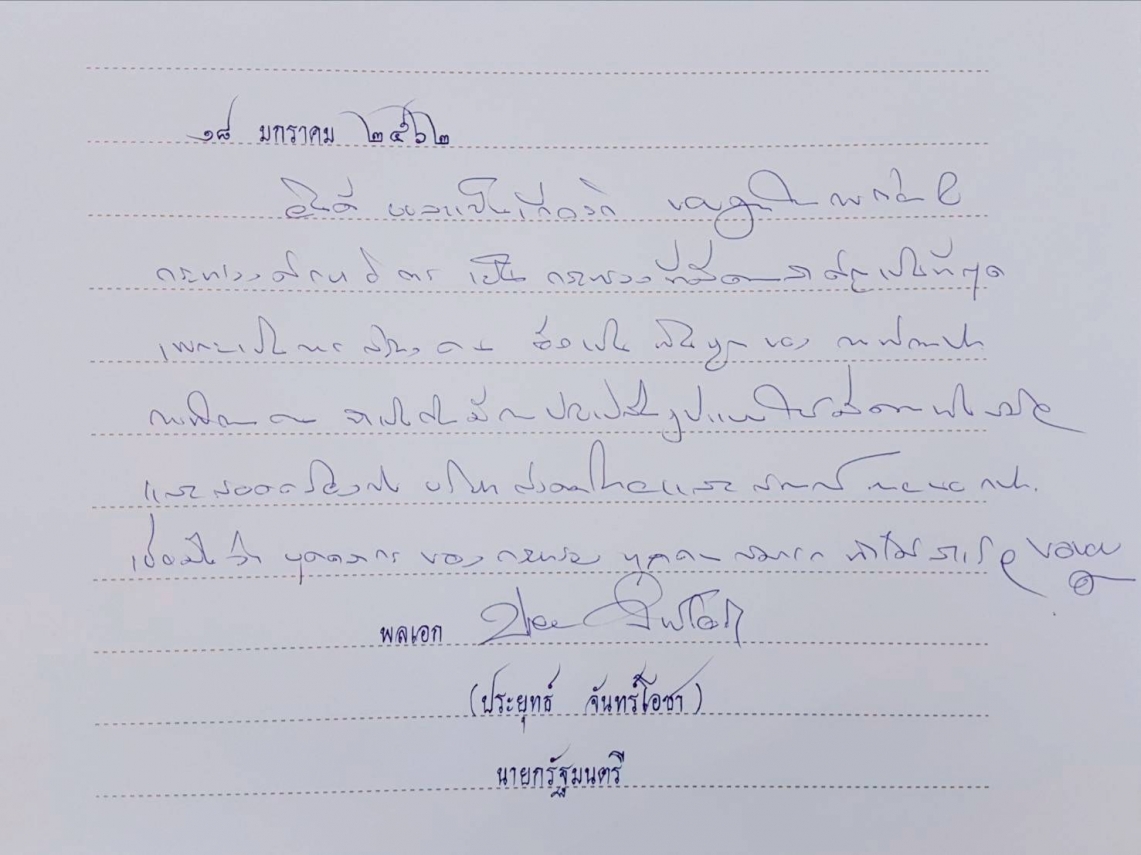 ๑๘ มกราคม ๒๕๖๒
ยินดี และเป็นเกียรติ
กระทรวงศึกษาธิการ เป็น กระทรวงที่มีความสำคัญเป็นที่สุด
เพราะเป็นการ สร้าง คน ซึ่งเป็น พื้นฐาน ของ การพัฒนา
การพัฒนา คน จำเป็นต้องมีการ ปรับเปลี่ยนรูปแบบให้มีความ
และ สอดคล้องกับ บริบท สังคมไทยและ
เชื่อมั่น ว่า บุคลากร ของ กระทรวง ทุกคน สามารถ ทำให้ สำเร็จ ขอบคุณ
พลเอก
(ประยุทธ์ จันทร์โอชา)
นายกรัฐมนตรี